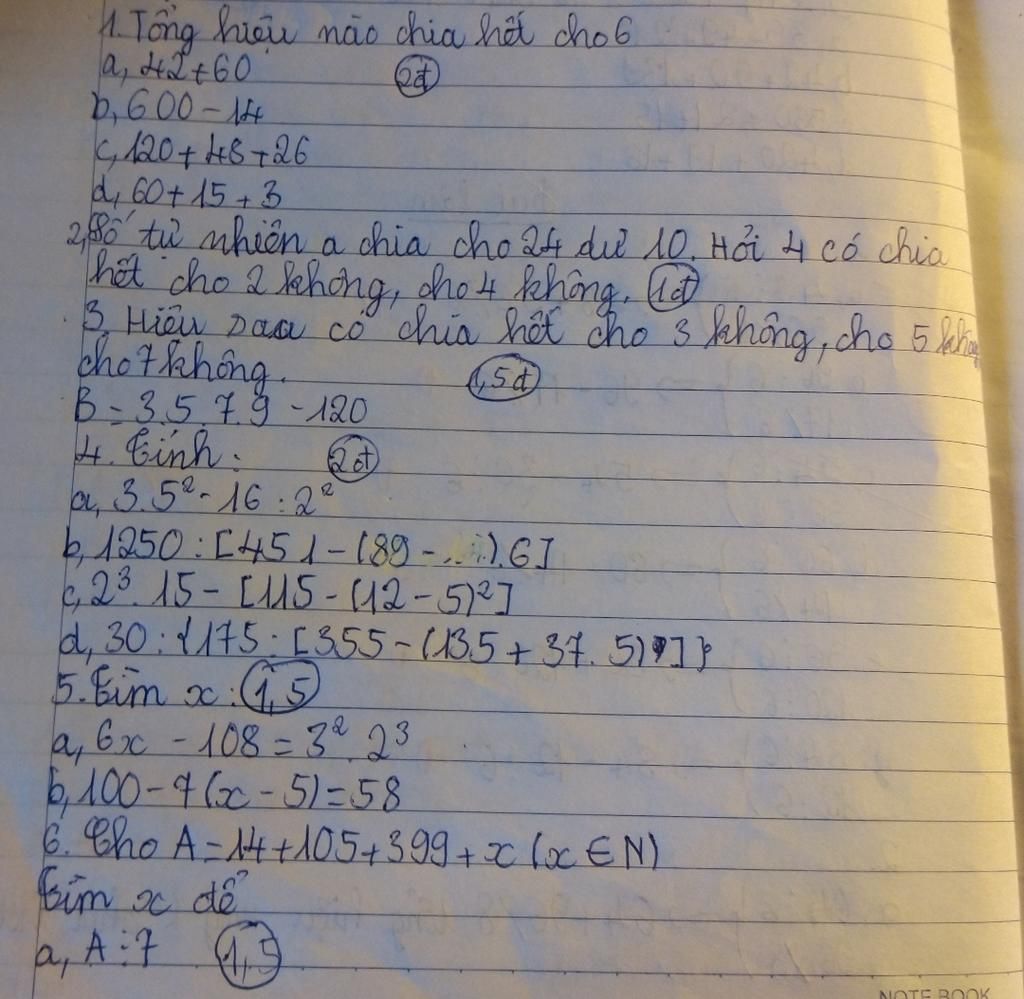 1. Tổng hiệu nào chia hết cho 6
a, 42+60 (2đ)
b, 600 - 14
c, 120 + 48 + 26
d, 60 + 15 + 3
2, Số tự nhiên a chia cho 24 dư 10. Hỏi 4 có chia
hết cho 2 không, cho 4 không. (1đ)
3. Hiệu sau có chia hết cho 3 không, cho 5
cho 7 không. (1,5đ)
B = 3.5.7.9 - 120
4. Tính: (2đ)
a, 3.5² - 16 : 2²
b, 1250 : [451 - (89 - ...).6]
c, 2³.15 - [115 - (12 - 5)²]
d, 30 : {175 : [355 - (135 + 37.5)]}
5. Tìm x: (1,5)
a, 6x - 108 = 3².2³
b, 100 - 7(x - 5) = 58
6. Cho A = 14 + 105 + 399 + x (x ∈ N)
Tìm x để
a, A ⋮ 7 (1,5)
NOTE BOOK